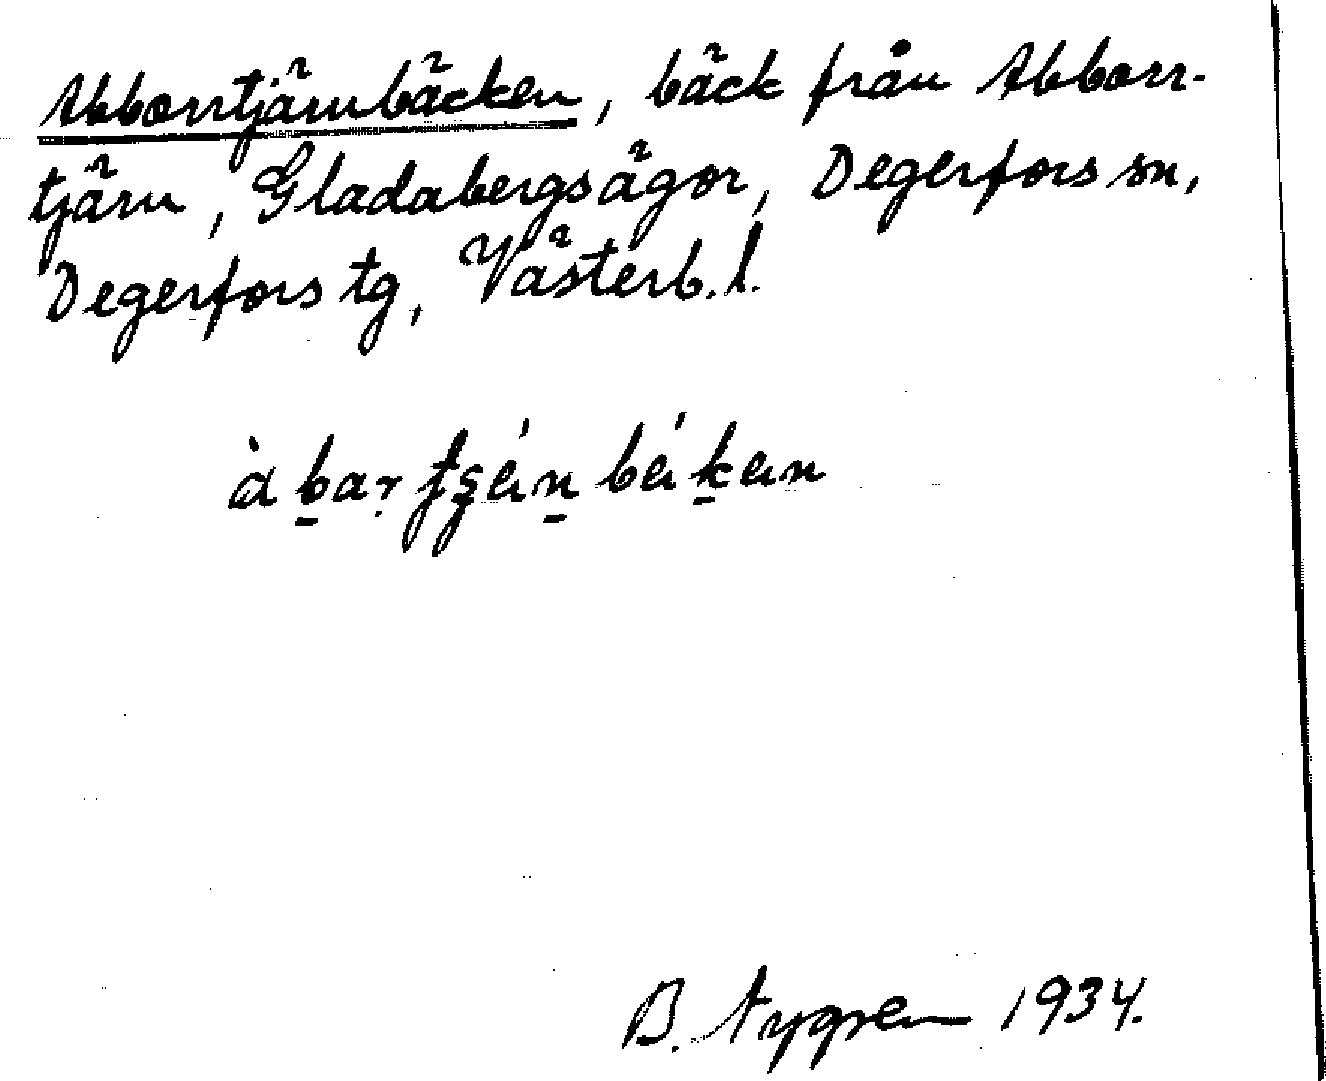 Abborrtjärnbäcken, bäck från Abborr-
tjärn, Gladabergsägor, Degerfors sn,
Degerfors tg, Västerb. l.
B. Nygren 1934.